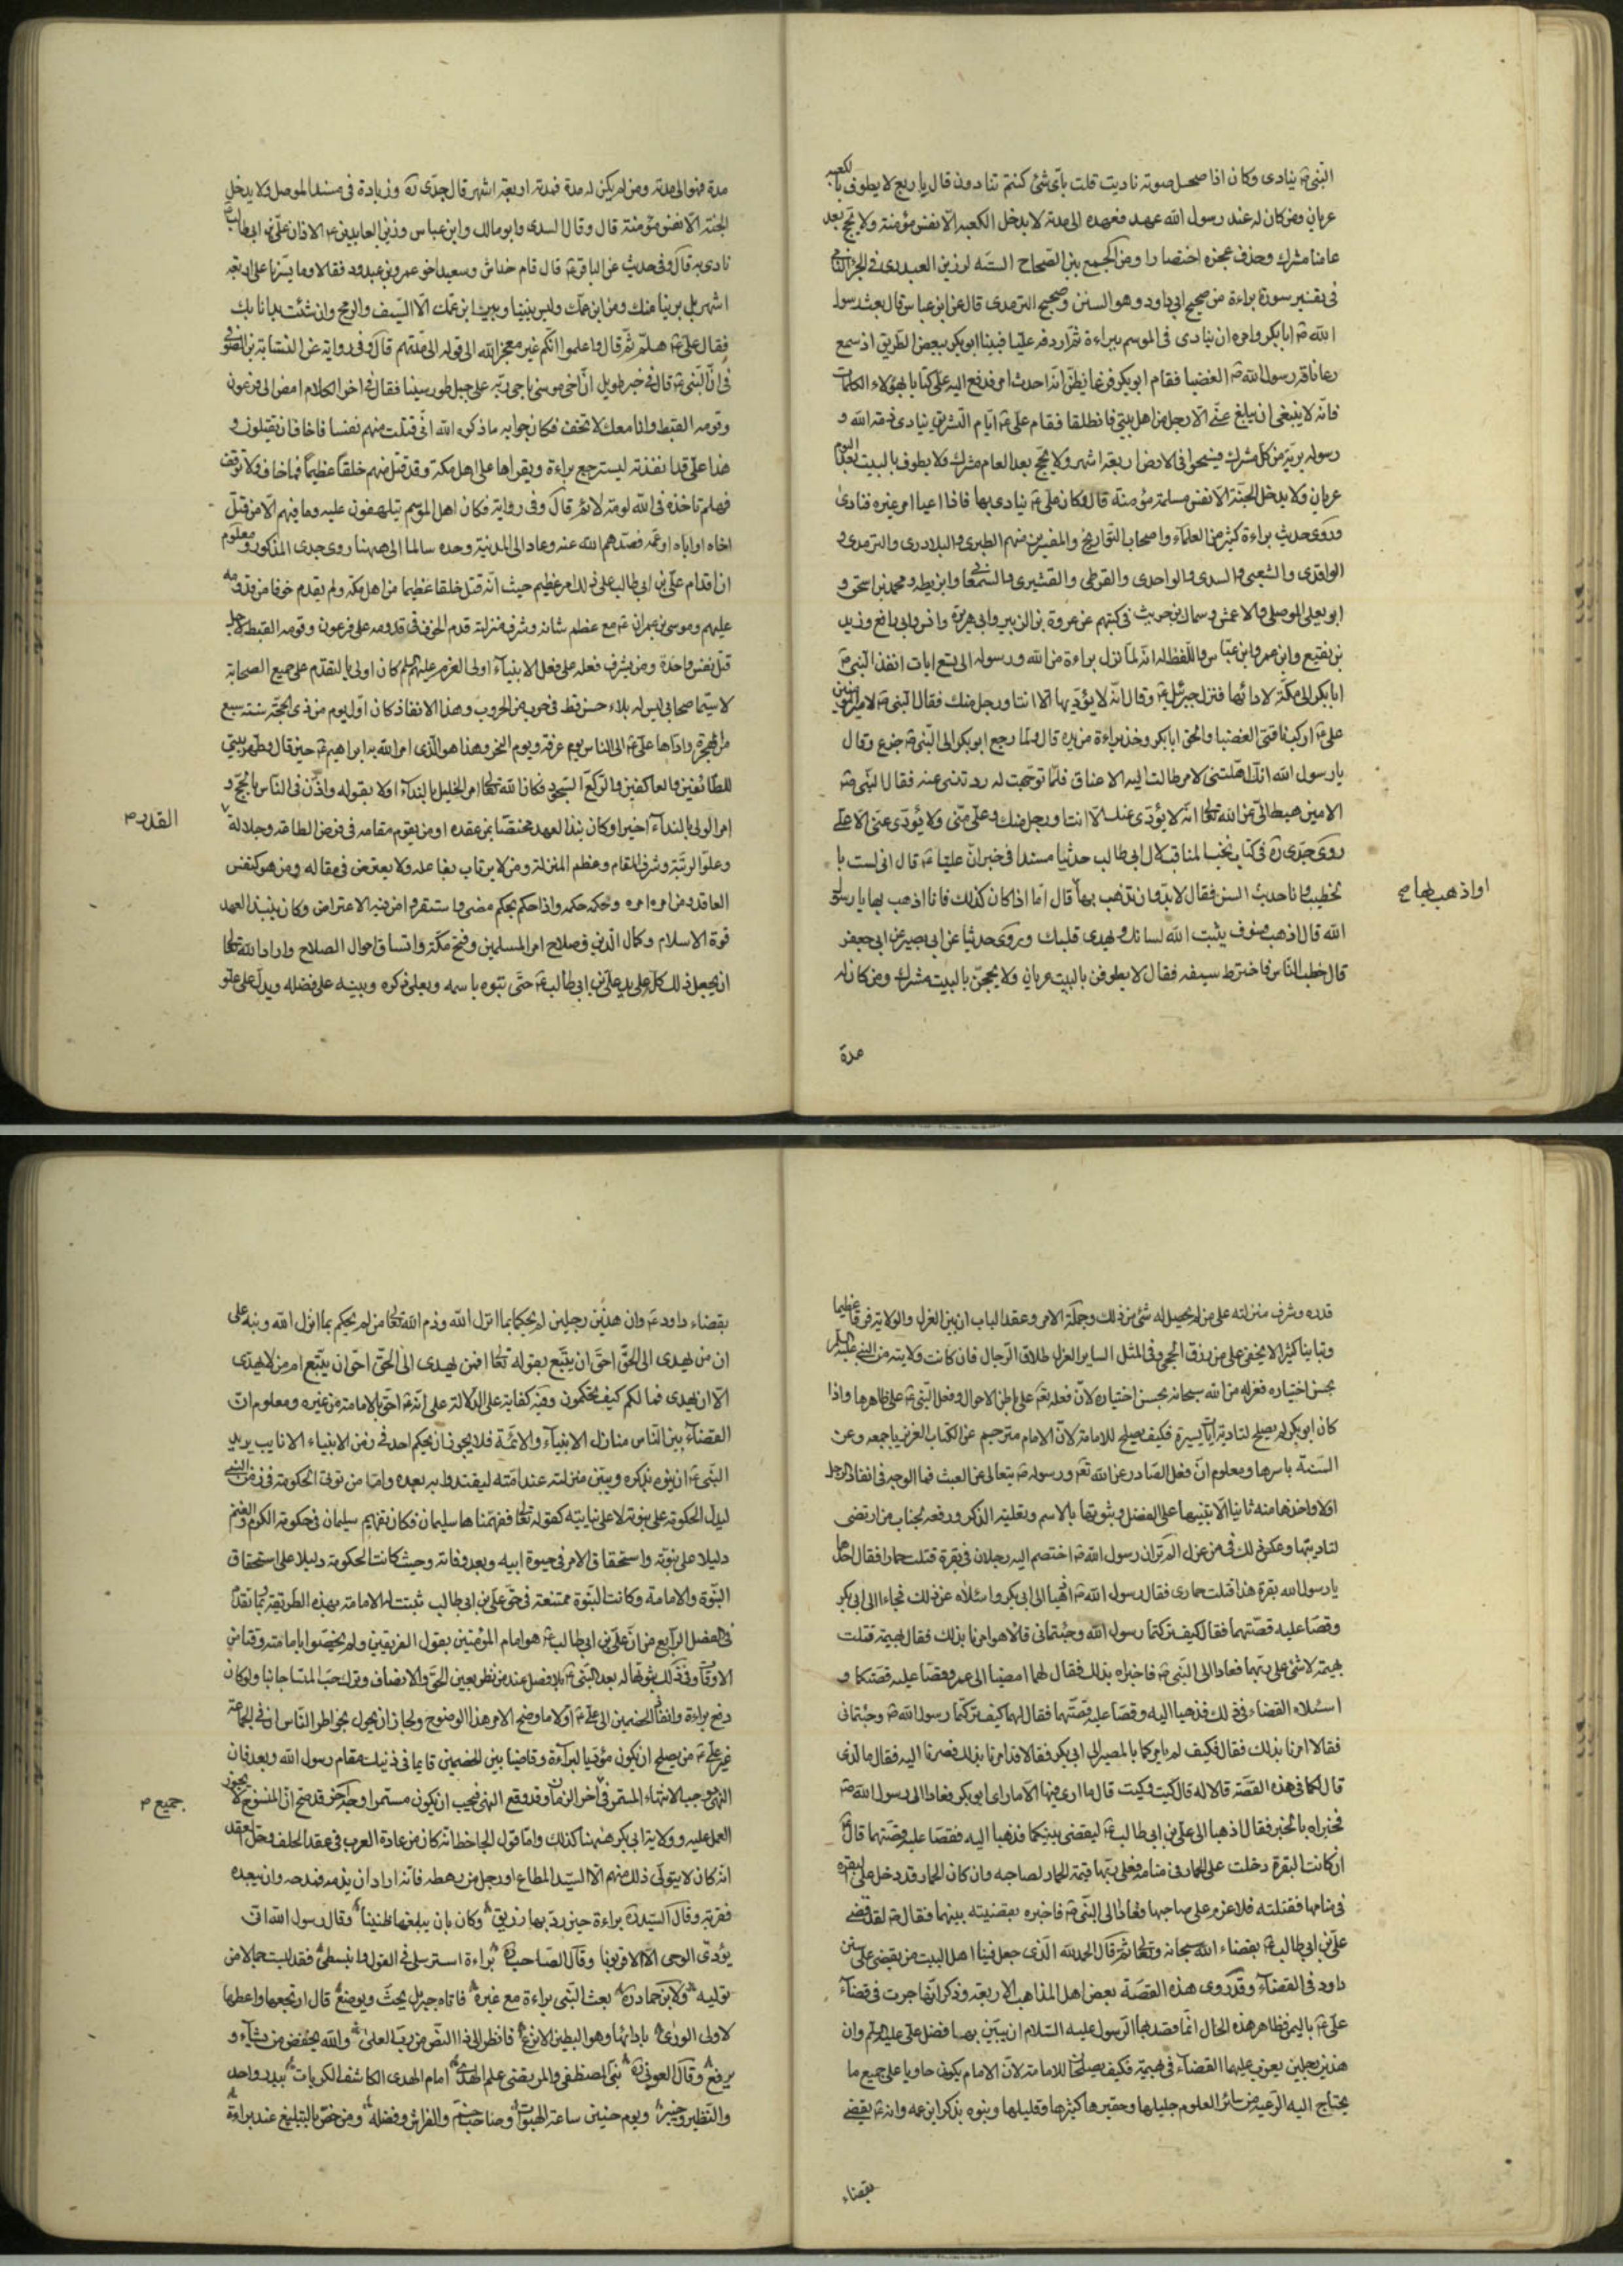 النبي ينادى وكان اذا صحل صوته ناديت قلت باى شئ كنتم تنادون قال باربع لا يطوف بالكعبه
عريان ومن كان له عند رسول الله عهد فعهده الى مدته لا يدخل الكعبه الا نفس مؤمنة ولا يحج بعد
عامنا مشرك وحذف عجزه اختصارا ومن الجمع بين الصحاح السته لرزين العبدرى فى الجزء الثانى
فى تفسير سورة براءة من صحيح ابى داود وهو السنن وصحيح الترمذى قال عن ابن عباس قال بعث رسول
الله ص ابا بكر وامره ان ينادى فى الموسم ببراءة ثم اردفه عليا فبينا ابو بكر ببعض الطريق اذ سمع
رغا ناقة رسول الله ص العضبا فقام ابو بكر فزعا يظن انه احدث امر فدفع اليه على كتابا بهؤلاء الكلمات
فانه لا ينبغى ان يبلغ عنى الا رجل من اهل بيتى فانطلقا فقام على ع ايام التشريق ينادى ذمة الله و
رسوله بريئة من كل مشرك فسيحوا فى الارض اربعة اشهر ولا يحج بعد العام مشرك ولا يطوف بالبيت بعد اليوم
عريان ولا يدخل الجنة الا نفس مسلمة مؤمنة قال فكان على ع ينادى بها فاذا اعيا امر غيره فنادى
وروى حديث براءة كثير من العلماء واصحاب التواريخ والمفسرين منهم الطبرى والبلاذرى والترمذى و
الواقدى والشعبى والسدى والواحدى والقرطى والقشيرى والسمعانى وابن بطه ومحمد بن اسحق و
ابو يعلى الموصلى والاعمش وسماك بن حريث فى كتبهم عن عروة بن الزبير وابى هريرة وانس وابى رافع وزيد
بن نفيع وابن عمر وابن عباس واللفظ له انه لما نزل براءة من الله ورسوله الى تسع ايات انفذ النبى ص
ابا بكر الى مكة لادائها فنزل جبرئيل ع وقال انه لا يؤديها الا انت او رجل منك فقال النبى ص لامير المؤمنين
على ع اركب ناقتى العضبا والحق ابا بكر وخذ براءة من يده قال ولما رجع ابو بكر الى النبى ص جزع وقال
يا رسول الله انك اهلتنى لامر طالت اليه الاعناق فلما توجهت له رددتنى عنه فقال النبى ص
الامين هبط الى عن الله تعالى انه لا يؤدى عنك الا انت او رجل منك وعلى منى ولا يؤدى عنى الا على
روى جدى ره فى كتاب نخب المناقب لال ابى طالب حديثا مسندا فى خبر ان عليا ع قال انى لست با
لخطيب وانا حديث السن فقال لابد وان تذهب بها قال اما اذا كان كذلك فانا اذهب بها يا رسول
او اذهب بها صح
الله قال اذهب فسوف يثبت الله لسانك ويهدى قلبك وروى حديثا عن ابى بصير عن ابى جعفر
قال خطب الناس فاخترط سيفه فقال لا يطوفن بالبيت عريان ولا يحجن بالبيت مشرك ومن كان له
مدة
مدة فهو الى مدته ومن لم يكن له مدة فمدته اربعة اشهر قال جدى ره وزيادة فى مسند الموصلى ولا يدخل
الجنة الا نفس مؤمنة قال وقال السدى وابو مالك وابن عباس وزين العابدين ع الاذان على بن ابى طالب
نادى به قال وفى حديث عن الباقر ع قال قام خداش وسعيد اخو عمرو بن عبدود فقالا وما يسرنا على اربعة
اشهر بل برينا منك ومن ابن عمك وليس بيننا وبين ابن عمك الا السيف والرمح وان شئت بدانا بك
فقال على ع هلم ثم قال واعلموا انكم غير معجزى الله الى قوله الى مدتهم قال وفى رواية عن النسابة بن الصوفى
فى ان النبى ص قال فى خبر طويل ان اخى موسى ناجى ربه على جبل طور سينا فقال فى اخر الكلام امض الى فرعون
وقومه القبط وانا معك لا تخف فكان جوابه ما ذكره الله انى قتلت منهم نفسا فاخاف ان يقتلون و
هذا على قد انفذته ليسترجع براءة ويقراها على اهل مكة وقد قتل منهم خلقا عظيما فما خاف ولا توقف
فهلم تاخذه فى الله لومة لائم قال وفى رواية فكان اهل الموسم يتلهفون عليه وما فيهم الا من قتل
اخاه او اباه او عمه فصدهم الله عنه وعاد الى المدينة وحده سالما الى ههنا روى جدى المذكور ومعلوم
ان اقدام على بن ابى طالب على ذلك امر عظيم حيث انه قتل خلقا عظيما من اهل مكة ولم يقدم خوفا من قدومه
عليهم وموسى بن عمران ع مع عظم شانه وشرف منزلته قدم الخوف فى قدومه على فرعون وقومه القبط لاجل
قتل نفس واحدة ومن يشرف فعله على فعل الانبياء اولى العزم عليهم السلم كان اولى بالتقدم على جميع الصحابة
لا سيما صحابى ليس له بلاء حسن قط فى حرب من الحروب وهذا الانفاذ كان اول يوم من ذى الحجة سنة تسع
من الهجرة واداها على ع الى الناس يوم عرفة ويوم النحر وهذا هو الذى امر الله به ابراهيم ع حين قال وطهر بيتى
للطائفين والعاكفين والركع السجود فكان الله تعالى امر الخليل بالنداء اولا بقوله واذن فى الناس بالحج و
امر الولى بالنداء اخيرا وكان نبذ العهد مختصا بمن عقده او من يقوم مقامه فى فرض الطاعة وجلالة
القدر ص
وعلو الرتبة وشرف المقام وعظم المنزلة ومن لا يرتاب بفاعله ولا يعترض فى مقاله ومن هو كنفس
العاقد ومن امره امره وحكمه حكمه واذا حكم بحكم مضى واستقر وامن فيه الاعتراض وكان بنبذ العهد
قوة الاسلام وكمال الدين وصلاح امر المسلمين وفتح مكة واتساق احوال الصلاح واراد الله تعالى
ان يجعل ذلك كله على يد على بن ابى طالب ع حتى ينوه باسمه ويعلى ذكره وينبه على فضله ويدل على علو
قدره وشرف منزلته على من لم يحصل له شئ من ذلك وجملة الامر وعقد الباب ان بين العزل والولاية فرقا عظيما
وتباينا كثيرا لا يخفى على من رزق الحجى وفى المثل الساير العزل طلاق الرجال فان كانت ولايته من النبى عليه السلم
بحسن اختياره فعزله من الله سبحانه بحسن اختياره لان فعله تعالى على باطن الاحوال وفعل النبى ص على ظاهرها واذا
كان ابو بكر لم يصلح لتادية ايات يسيرة فكيف يصلح للامامة لان الامام مترجم عن الكتاب العزيز باجمعه وعن
السنة باسرها ومعلوم ان فعل الصادر عن الله تعالى ورسوله ص يتعالى عن العبث فما الوجه فى انفاذ الرجل
اولا واخذها منه ثانيا الا تنبيها على الفضل وتنويها بالاسم وتعلية الذكر ورفعة لجناب من ارتضى
لتاديتها وعكس ذلك فى من عزل الم تر ان رسول الله ص اختصم اليه رجلان فى بقرة قتلت حمارا فقال احدهما
يا رسول الله بقرة هذا قتلت حمارى فقال رسول الله ص اذهبا الى ابى بكر واسئلاه عن ذلك فجاءا الى ابى بكر
وقصا عليه قصتهما فقال كيف تركتما رسول الله وجئتمانى قالا هو امرنا بذلك فقال بهيمة قتلت
بهيمة لا شئ على ربها فعادا الى النبى ص فاخبراه بذلك فقال لهما امضيا الى عمر وقصا عليه قصتكما و
اسئلاه القضاء فى ذلك فذهبا اليه وقصا عليه قصتهما فقال لهما كيف تركتما رسول الله ص وجئتمانى
فقالا امرنا بذلك فقال فكيف لم يامركما بالمصير الى ابى بكر فقالا قد امرنا بذلك فصرنا اليه فقال ما الذى
قال لكما فى هذه القصة قالا له قال كيت وكيت قال ما ارى فيها الا ما راى ابو بكر فعادا الى رسول الله ص
فخبراه بالخبر فقال اذهبا الى على بن ابى طالب ع ليقضى بينكما فذهبا اليه فقصا عليه قصتهما قال ع
ان كانت البقرة دخلت على الحمار فى منامه فعلى ربها قيمة الحمار لصاحبه وان كان الحمار قد دخل على البقره
فى منامها فقتلته فلا غرم على صاحبها فعادا الى النبى ص فاخبره بقضيته بينهما فقال ص لقد قضى
على بن ابى طالب ع بقضاء الله سبحانه وتعالى ثم قال الحمد لله الذى جعل فينا اهل البيت من يقضى على سنن
داود فى القضاء وقد روى هذه القصة بعض اهل المذاهب الاربعة وذكر انها جرت فى قضاء
على ع باليمن فظاهر هذه الحال انما قصد بها الرسول عليه السلام ان يبين بهما فضل على عليه السلم وان
هذين رجلين يعزب عليهما القضاء فى بهيمة فكيف يصلحا للامامة لان الامام يكون حاويا على جميع ما
يحتاج اليه الرعية من سائر العلوم جليلها وحقيرها كثيرها وقليلها وينوه بذكر ابن عمه وانه ع يقضى
بقضاء
بقضاء داود ع وان هذين رجلين لم يحكما بما انزل الله وذم الله تعالى من لم يحكم بما انزل الله ونبه على
ان من يهدى الى الحق احق ان يتبع بقوله تعالى افمن يهدى الى الحق احق ان يتبع امن لا يهدى
الا ان يهدى فما لكم كيف تحكمون وفيه كفاية على الدلالة على انه ع احق بالامامة من غيره ومعلوم ان
القضاء بين الناس منازل الانبياء والائمة فلا يجوز ان يحكم احد فى زمن الانبياء الا نايب يريد
النبى ع ان ينوه بذكره ويبين منزلته عند امته ليقتدوا به بعده واما من تولى الحكومة فى زمن النبى
ليدل الحكومة على نبوته لا على نيابته كقوله تعالى ففهمناها سليمان فكان تفهيم سليمان فى حكومة الكرم والغنم
دليلا على نبوته واستحقاق الامر فى حيوة ابيه وبعد وفاته وحيث كانت الحكومة دليلا على استحقاق
النبوة والامامة وكانت النبوة ممتنعة فى حق على بن ابى طالب ثبتت له الامامة بهذه الطريقة بما تقدم
فى الفصل الرابع من ان على بن ابى طالب ع هو امام المؤمنين بقول الفريقين ولم يخصوا بامامته وقتا من
الاوقات وفى ذلك ثبوتها له بعد النبى ص بلا فصل عند من نظر بعين الحق والانصاف وترك حب المنشا جانبا ولو كان
دفع براءة وانفاذ الخصمين الى على ع اولا ما وضح الامر هذا الوضوح ولجاز ان يجول بخواطر الناس ان فى الجماعة
غير على ع من يصلح ان يكون مؤديا لبراءة وقاضيا بين الخصمين قايما فى ذينك مقام رسول الله وبعد فان
النهى يوجب الانتهاء المستمر فى اخر الزمان وقد وقع النهى فيجب ان يكون مستمرا
جميع ص
العمل عليه وولاية ابى بكر ههنا كذلك واما قول الجاحظ انه كان من عادة العرب فى عقد الحلف وحل العقد
انه كان لا يتولى ذلك منهم الا السيد المطاع او رجل من رهطه فانه اراد ان يذمه فمدحه وان يبعده
فقربه وقال السيد ره براءة حين رد بها زريق وكان بان يبلغها ظنينا وقال رسول الله انى
يؤدى الوحى الا الاقربونا وقال الصاحب ره براءة استرسلى فى القول وانبسطى فقد لبست جمالا من
توليه ولابن حماد ره بعث النبى براءة مع غيره فاتاه جبريل يحث ويوضع قال ارتجعها واعطها
لاولى الورى بادائها وهو البطين الانزع فانظر الى ذا النص من رب العلى والله يخفض من يشاء و
يرفع وقال العونى ره نبى المصطفى والمرتضى علم الهدى امام الهدى الكاشف الكربات ببدر واحد
والنضير وخيبر ويوم حنين ساعة الهبوات وصاحب خم والفراش وفضله ومن خص بالتبليغ عند براءة